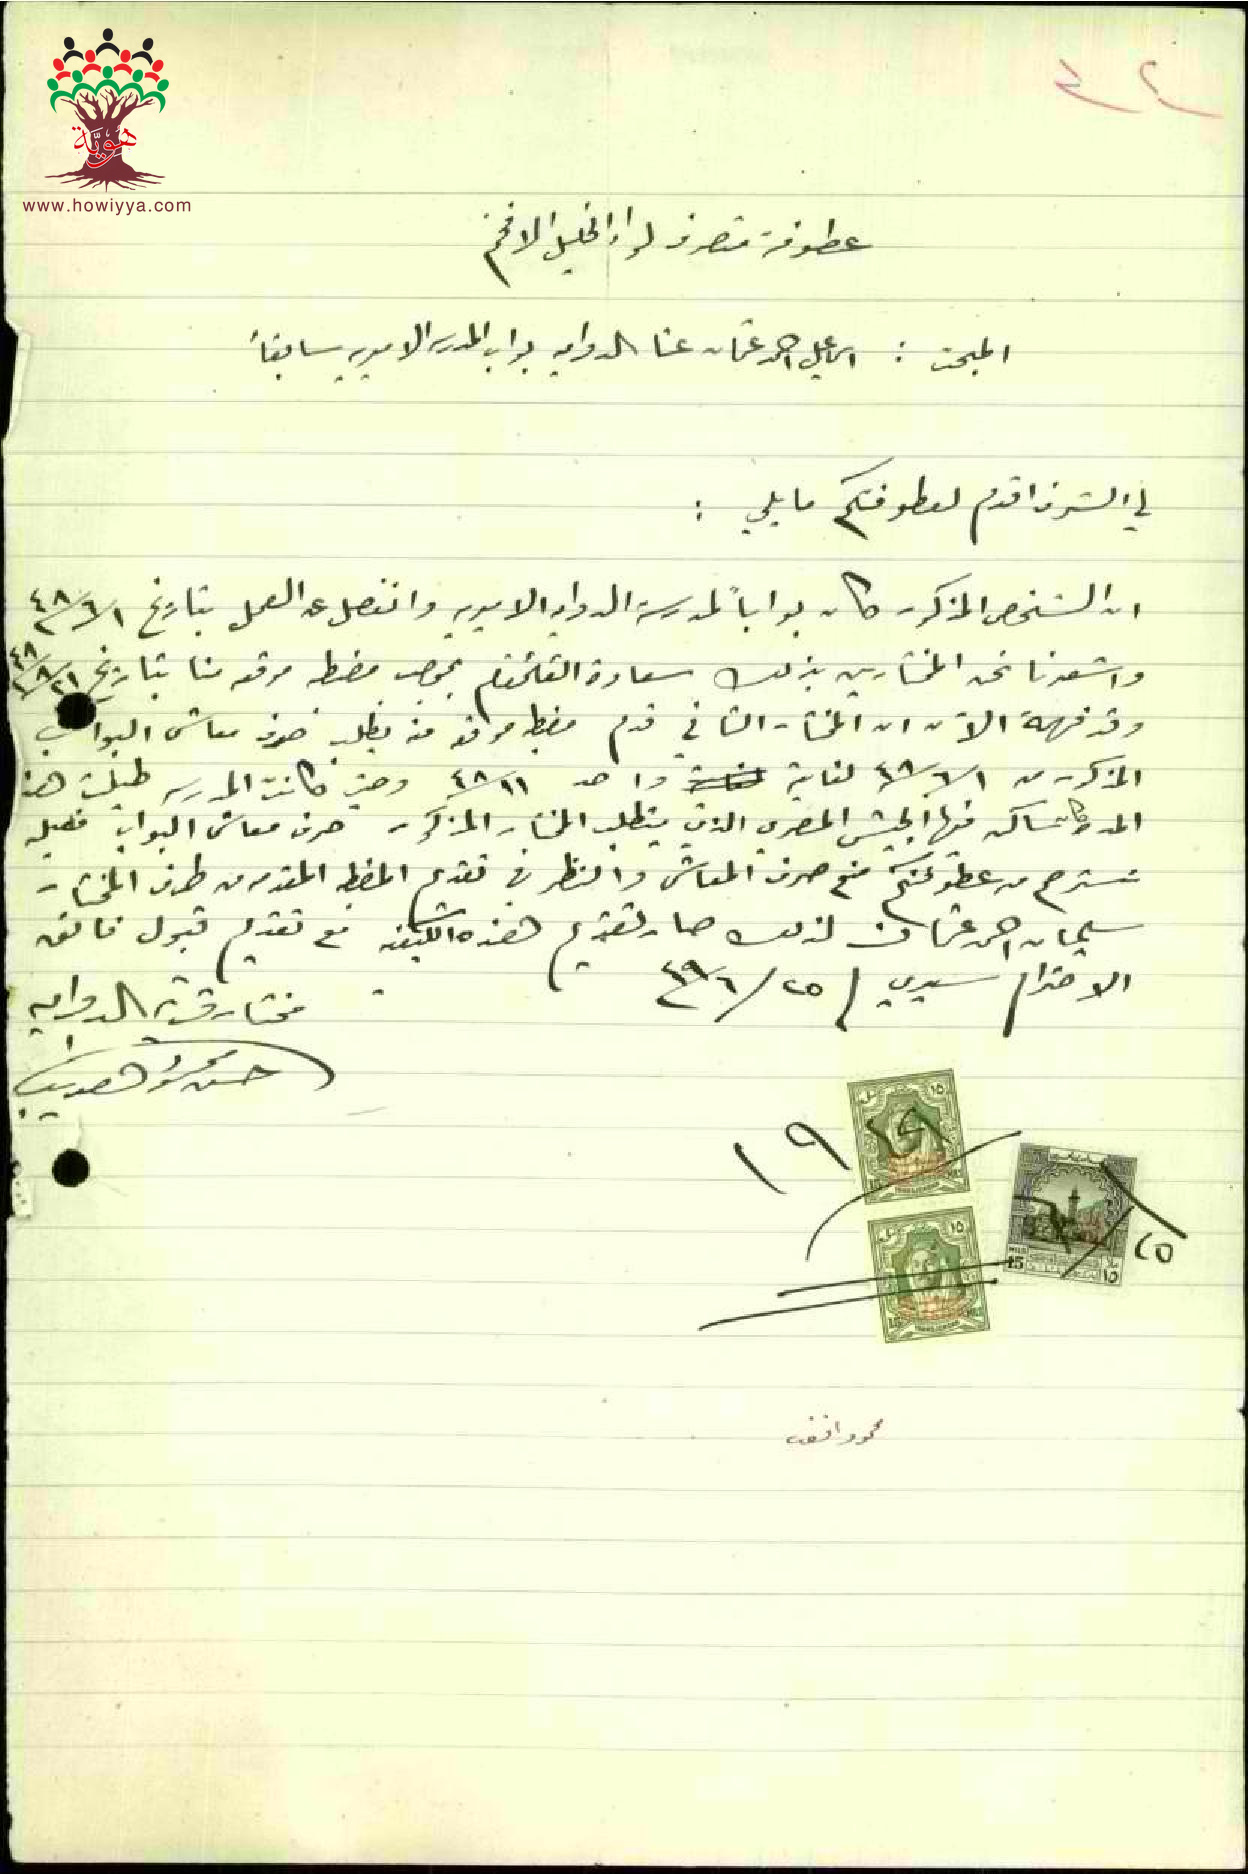 هوية
www.howiyya.com
عطوفة متصرف لواء الخليل الافخم
المبحث : اسماعيل احمد عثمان الدوايمه بواب المدرسه الاميريه سابقاً
لي الشرف اقدم لعطوفتكم ما يلي :
ان الشخص المذكور كان بواباً لمدرسة الدوايمه الاميريه وانفصل عن العمل بتاريخ ١/٦/٤٨
واشعرنا نحن المختارين بذلك سعادة القائمقام بموجب مضبطه موقعه منا بتاريخ ٢١/٨/٤٨
وقد فهمت الآن ان المختار الثاني قدم مضبطه موقعه منه بطلب صرف معاش البواب
المذكور من ١/٦/٤٨ لغاية واحد ١١/٤٨ وحيث كانت المدرسه طيلة هذه
المده كان ساكن فيها الجيش المصري الذي يتطلب المختار المذكور صرف معاش البواب فعليه
نسترحم من عطوفتكم منع صرف المعاش والنظر في تقديم المضبطه المقدمه من طرف المختار
سليمان احمد عثمان لذلك صار تقديم هذه مع تقديم قبول فائق
الاحترام سيدي / ٢٥/٦/٤٩
مختار قرية الدوايمه
حسن محمود هديب
١٥
١٩٤٩
15
TRANSJORDAN
١٥
MILS
15
١٥
٢٥